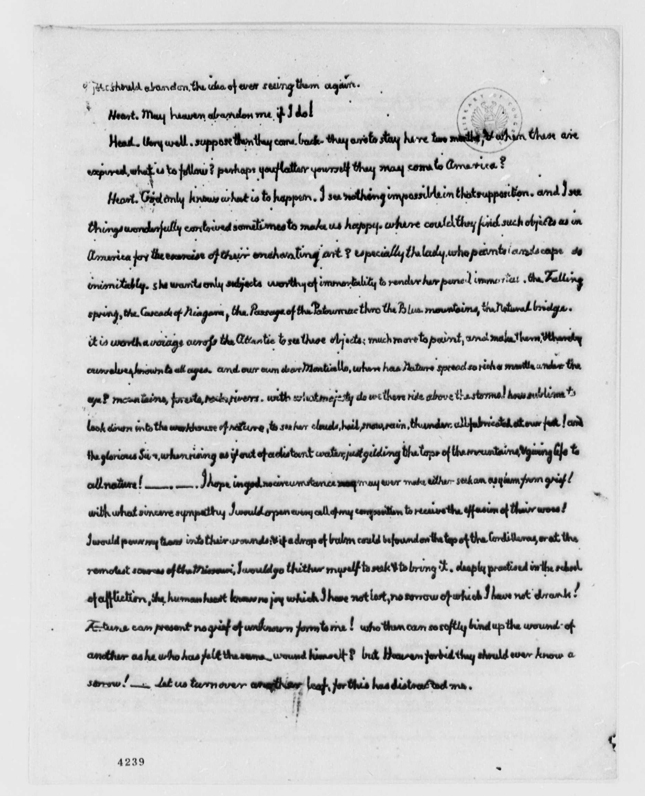 should abandon the idea of ever seeing them again.
Heart. May heaven abandon me if I do!
Head. Very well. suppose then they come back. they are to stay here two months, & when these are
expired, what is to follow? perhaps you flatter yourself they may come to America?
Heart. God only knows what is to happen. I see nothing impossible in that supposition. and I see
things wonderfully contrived sometimes to make us happy. where could they find such objects as in
America for the exercise of their enchanting art? especially the lady, who paints landscape so
inimitably. she wants only subjects worthy of immortality to render her pencil immortal. the Falling
spring, the Cascade of Niagara, the Passage of the Patowmac thro the Blue mountains, the Natural bridge.
it is worth a voiage across the Atlantic to see these objects; much more to paint, and make them, & thereby
ourselves, known to all ages. and our own dear Monticello, where has Nature spread so rich a mantle under the
eye? mountains, forests, rocks, rivers. with what majesty do we there ride above the storms! how sublime to
look down into the workhouse of nature, to see her clouds, hail, snow, rain, thunder, all fabricated at our feet! and
the glorious Sun, when rising as if out of a distant water, just gilding the tops of the mountains, & giving life to
all nature! — — . I hope in god no circumstance may ever make either seek an asylum from grief!
with what sincere sympathy I would open every cell of my composition to receive the effusion of their woes!
I would pour my tears into their wounds: & if a drop of balm could be found on the top of the Cordilleras, or at the
remotest sources of the Missouri, I would go thither myself to seek & to bring it. deeply practised in the school
of affliction, the human heart knows no joy which I have not lost, no sorrow of which I have not drank!
Fortune can present no grief of unknown form to me! who then can so softly bind up the wound of
another as he who has felt the same wound himself? but Heaven forbid they should ever know a
sorrow! — let us turn over another leaf, for this has distracted me.
4239